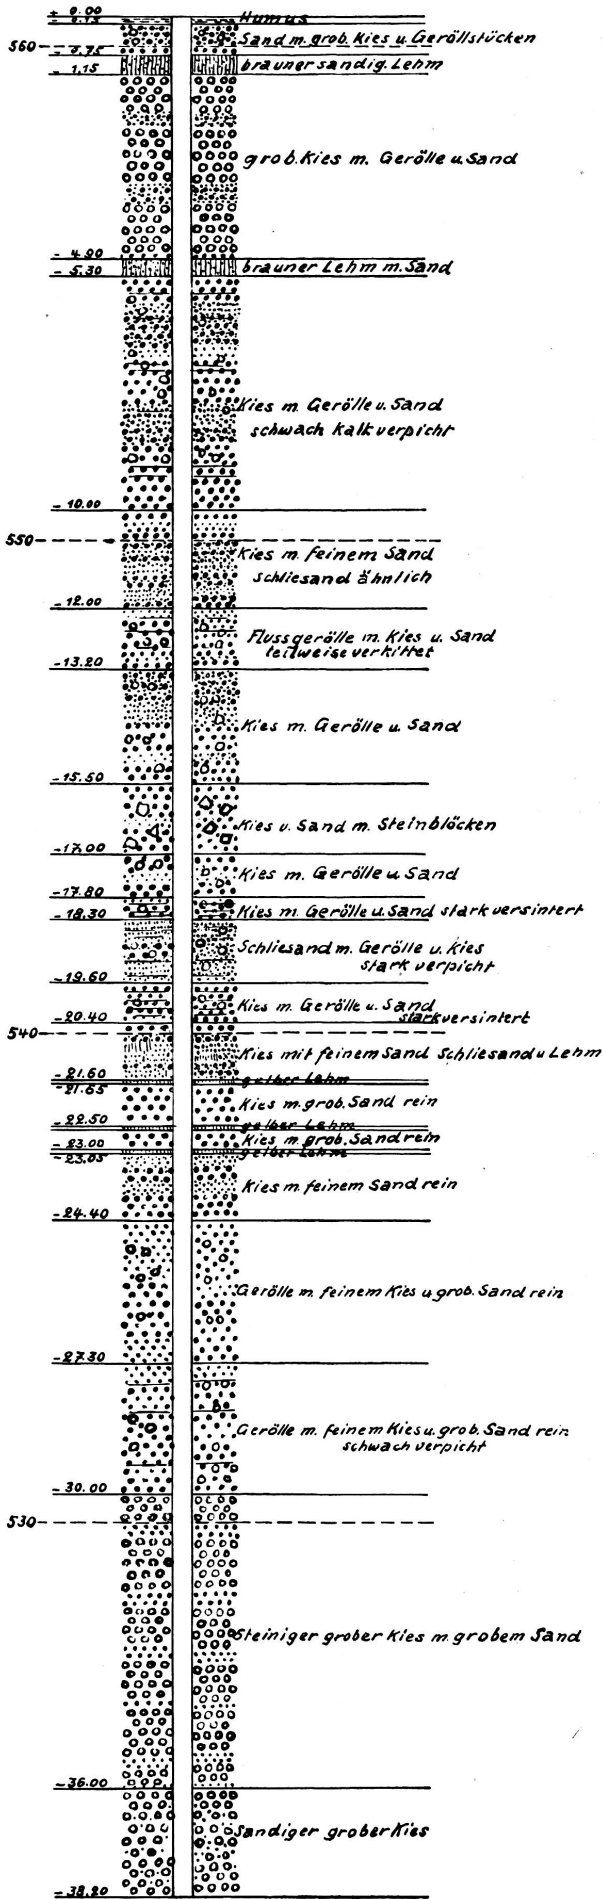 ± 0.00
0.15 Humus
560 Sand m. grob. Kies u. Geröllstücken
- 0.75
brauner sandig. Lehm
- 1.15
grob. Kies m. Gerölle u. Sand
- 4.90
brauner Lehm m. Sand
- 5.30
Kies m. Gerölle u. Sand
schwach kalk verpicht
- 10.00
550
Kies m. feinem Sand
schliesand ähnlich
- 12.00
Flussgerölle m. Kies u. Sand
teilweise verkittet
- 13.20
Kies m. Gerölle u. Sand
- 15.50
Kies u. Sand m. Steinblöcken
- 17.00
Kies m. Gerölle u. Sand
- 17.80
Kies m. Gerölle u. Sand stark versintert
- 18.30
Schliesand m. Gerölle u. Kies
stark verpicht
- 19.60
Kies m. Gerölle u. Sand
stark versintert
- 20.40
540
Kies mit feinem Sand Schliesand u Lehm
- 21.60
gelber Lehm
- 21.65
Kies m. grob. Sand rein
- 22.50
gelber Lehm
Kies m. grob. Sand rein
- 23.00
gelber Lehm
- 23.05
Kies m. feinem Sand rein
- 24.40
Gerölle m. feinem Kies u. grob. Sand rein
- 27.30
Gerölle m. feinem Kies u. grob. Sand rein
schwach verpicht
- 30.00
530
Steiniger grober Kies m. grobem Sand
- 36.00
Sandiger grober Kies
- 38.20